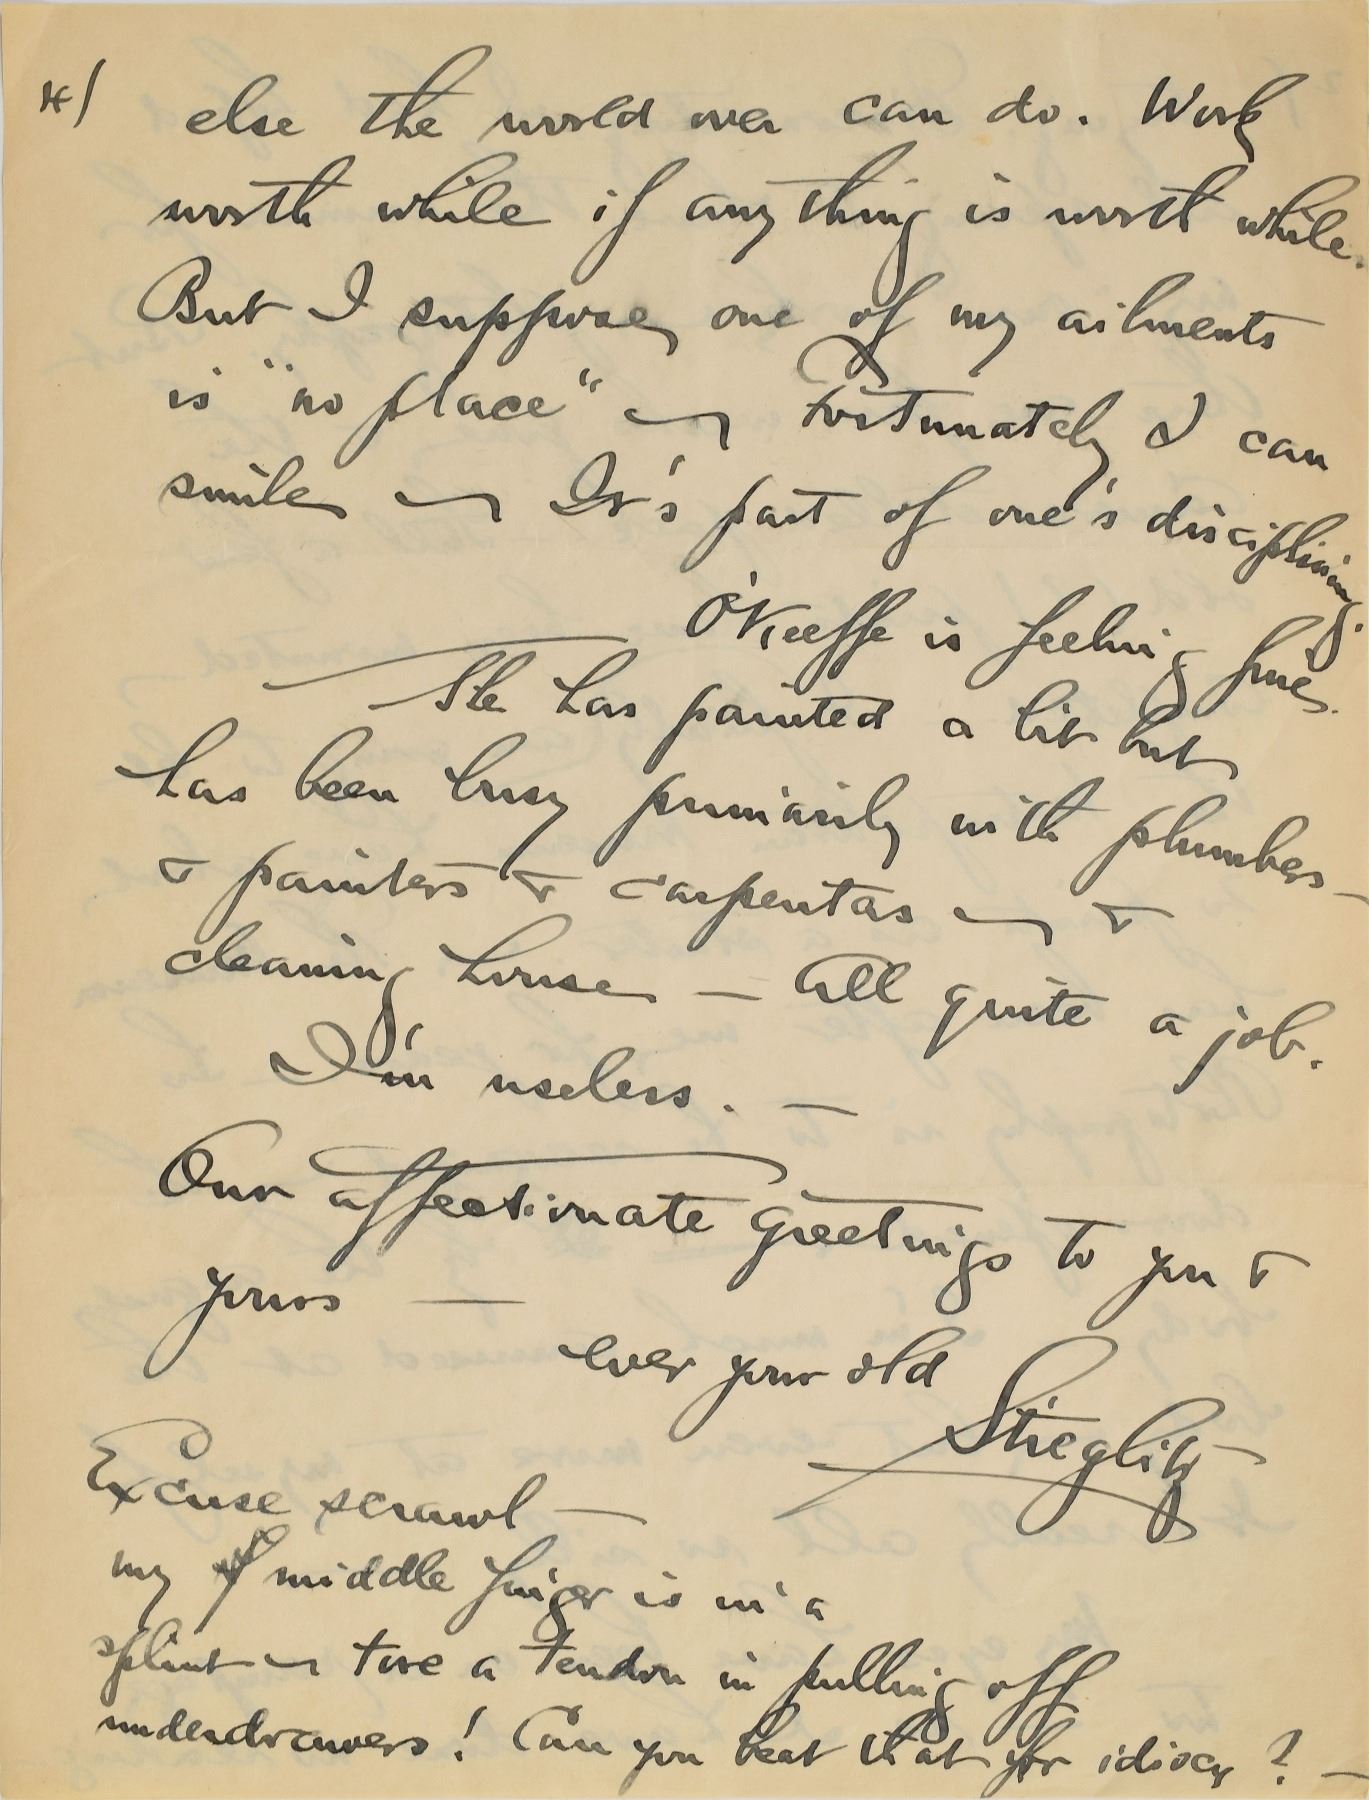 4/ else the world over can do. Work
worth while if anything is worth while.
But I suppose one of my ailments
is "no place" — Fortunately I can
smile — It's part of one's disciplining.
O'Keeffe is feeling fine.
She has painted a bit but
has been busy primarily with plumbers —
& painters & carpenters — &
cleaning house — All quite a job.
I'm useless. —
Our affectionate greetings to you &
yours —
ever your old
Stieglitz
Excuse scrawl —
my middle finger is in a
splint — tore a tendon in pulling off
underdrawers! Can you beat that for idiocy? —